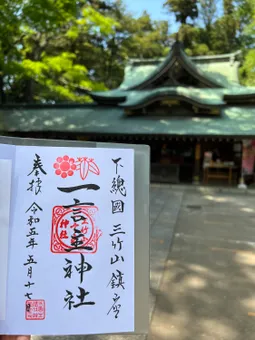 下總國 三竹山 鎮座
一言主神社
奉拝 令和五年 五月十七